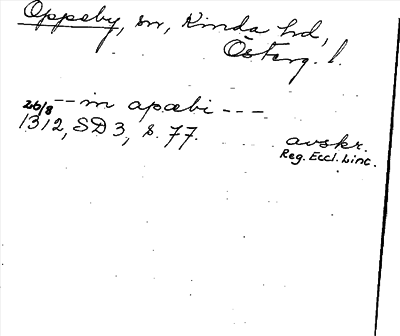 Oppeby, sn, Kinda hd,
Österg. l.
-- in apæbi ---
26/8 1312, SD 3, s. 77.
avskr.
Reg. Eccl. Linc.